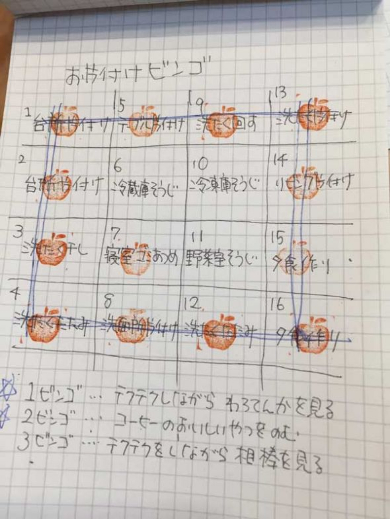 お片付けビンゴ
1 5 9 13
台所片付け テーブル片付け 洗たく回す 洗たく片付け
2 6 10 14
台所片付け 冷蔵庫そうじ 冷凍庫そうじ リビング片付け
3 7 11 15
洗たく干し 寝室ゴミあつめ 野菜室そうじ 夕食作り
4 8 12 16
洗たくたたみ 洗面所片付け 洗たくたたみ
1ビンゴ… テクテクしながら わろてんかを見る
2ビンゴ… コーヒーのおいしいやつをのむ
3ビンゴ… テクテクをしながら 相棒を見る